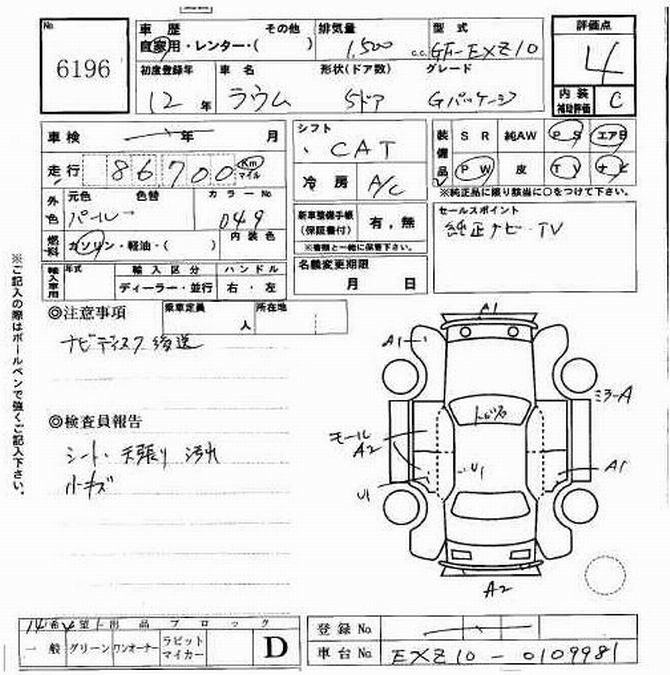 No.
6196
車歴
自家用・レンター・( その他 )
排気量
1,500 c.c.
型式
GF-EXZ10
評価点
4
初度登録年
12年
車名
ラウム
形状(ドア数)
5ドア
グレード
Gパッケージ
内装補助評価
C
車検 年 月
走行 86,700 Km マイル
シフト
CAT
冷房
A/C
装備品
SR 純AW PS エアB
PW 皮 TV ナビ
※純正品に限り該当に○をつけて下さい。
外色
元色 色替
パール
カラーNo.
049
内装色
燃料
ガソリン・軽油・( )
新車整備手帳
(保証書付)
有,無
※書類と一緒に保管下さい。
セールスポイント
純正ナビ・TV
輸入車用
年式
輸入区分
ディーラー・並行
ハンドル
右・左
名義変更期限
月 日
◎注意事項
乗車定員 人
所在地
ナビディスク後送
◎検査員報告
シート・天張り汚れ
小キズ
※ご記入の際はボールペンで強くご記入下さい。
A1
A1
ミラーA
トビ石
モール
A2
U1
U1
A1
A2
希望出品ブロック
一般 グリーン ワンオーナー ラビットマイカー D
登録No.
車台No. EXZ10-0109981